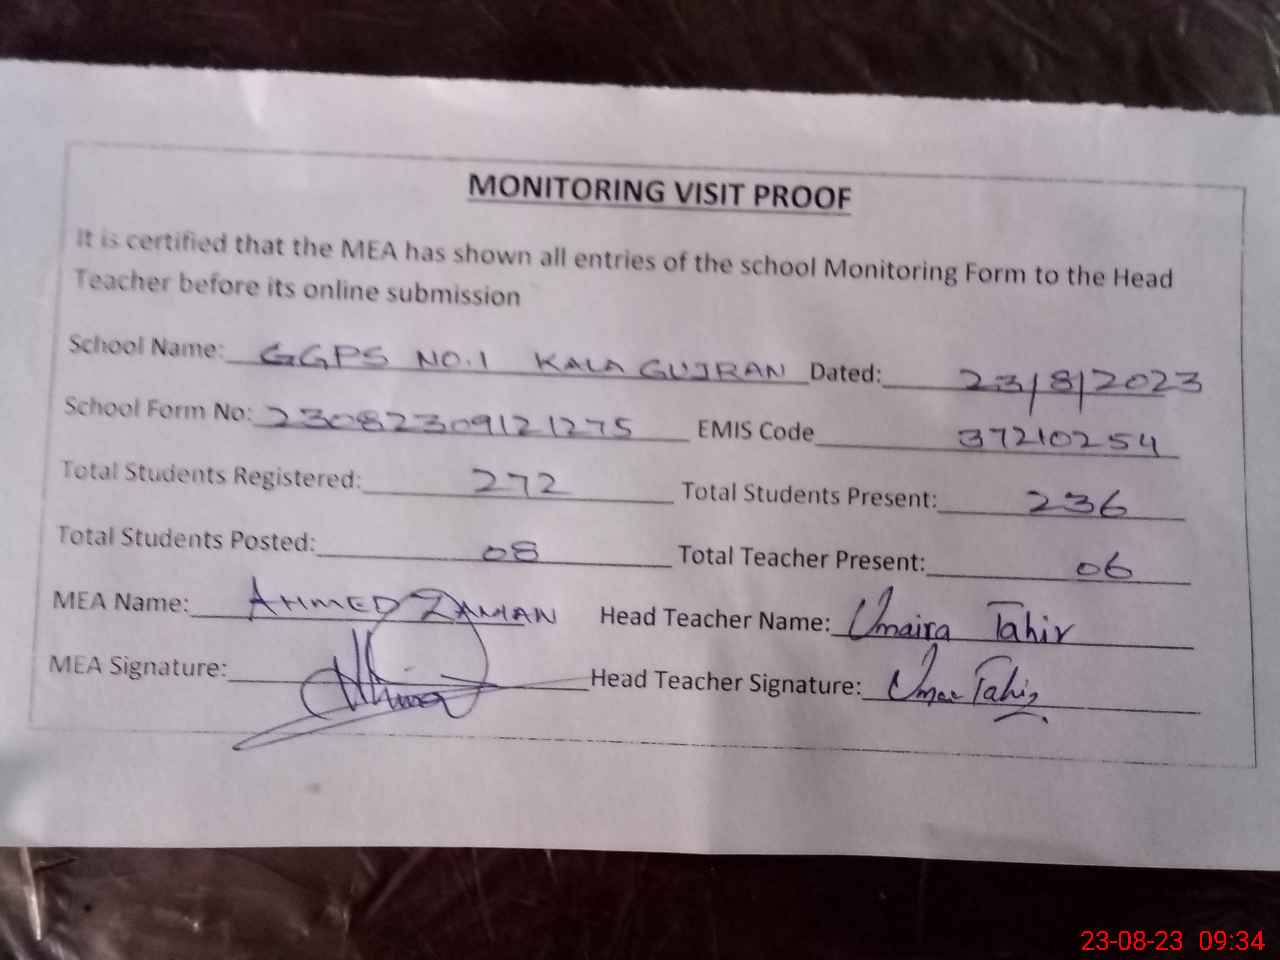 MONITORING VISIT PROOF
It is certified that the MEA has shown all entries of the school Monitoring Form to the Head
Teacher before its online submission
School Name: GGPS NO.1 KALA GUJRAN Dated: 23/8/2023
School Form No: 23082309121275 EMIS Code 37210254
Total Students Registered: 272 Total Students Present: 236
Total Students Posted: 08 Total Teacher Present: 06
MEA Name: AHMED ZAMAN Head Teacher Name: Umaira Tahir
MEA Signature: Head Teacher Signature: Tahir
23-08-23 09:34